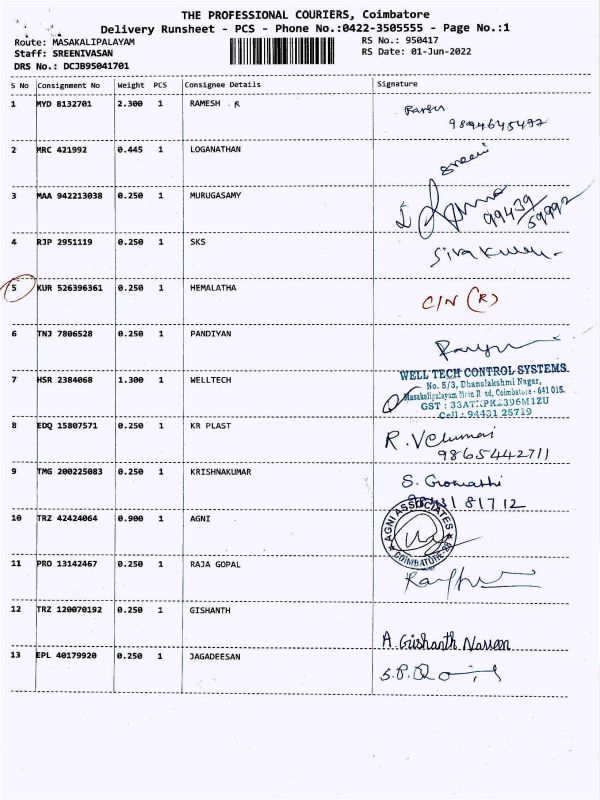 THE PROFESSIONAL COURIERS, Coimbatore
Delivery Runsheet - PCS - Phone No.:0422-3505555 - Page No.:1
Route: MASAKALIPALAYAM RS No.: 950417
Staff: SREENIVASAN RS Date: 01-Jun-2022
DRS No.: DCJB95041701
S No Consignment No Weight PCS Consignee Details Signature
1 MYD 8132701 2.300 1 RAMESH R
9894645492
2 MRC 421992 0.445 1 LOGANATHAN
Sreeni
3 MAA 942213038 0.250 1 MURUGASAMY
99439
59992
4 RJP 2951119 0.250 1 SKS
Sivakumar
5 KUR 526396361 0.250 1 HEMALATHA C/N (R)
6 TNJ 7806528 0.250 1 PANDIYAN
7 HSR 2384068 1.300 1 WELLTECH
WELL TECH CONTROL SYSTEMS.
No. 5/3, Dhanalakshmi Nagar,
Masakalipalayam Main Road, Coimbatore - 641 015.
Cell : 94431 25719
8 EDQ 15807571 0.250 1 KR PLAST
R. Velumani
9865442711
9 TMG 200225083 0.250 1 KRISHNAKUMAR
S. Gomathi
81712
10 TRZ 42424064 0.900 1 AGNI
AGNI ASSOCIATES
COIMBATORE
11 PRO 13142467 0.250 1 RAJA GOPAL
12 TRZ 120070192 0.250 1 GISHANTH
A Gishanth Naveen
13 EPL 40179920 0.250 1 JAGADEESAN